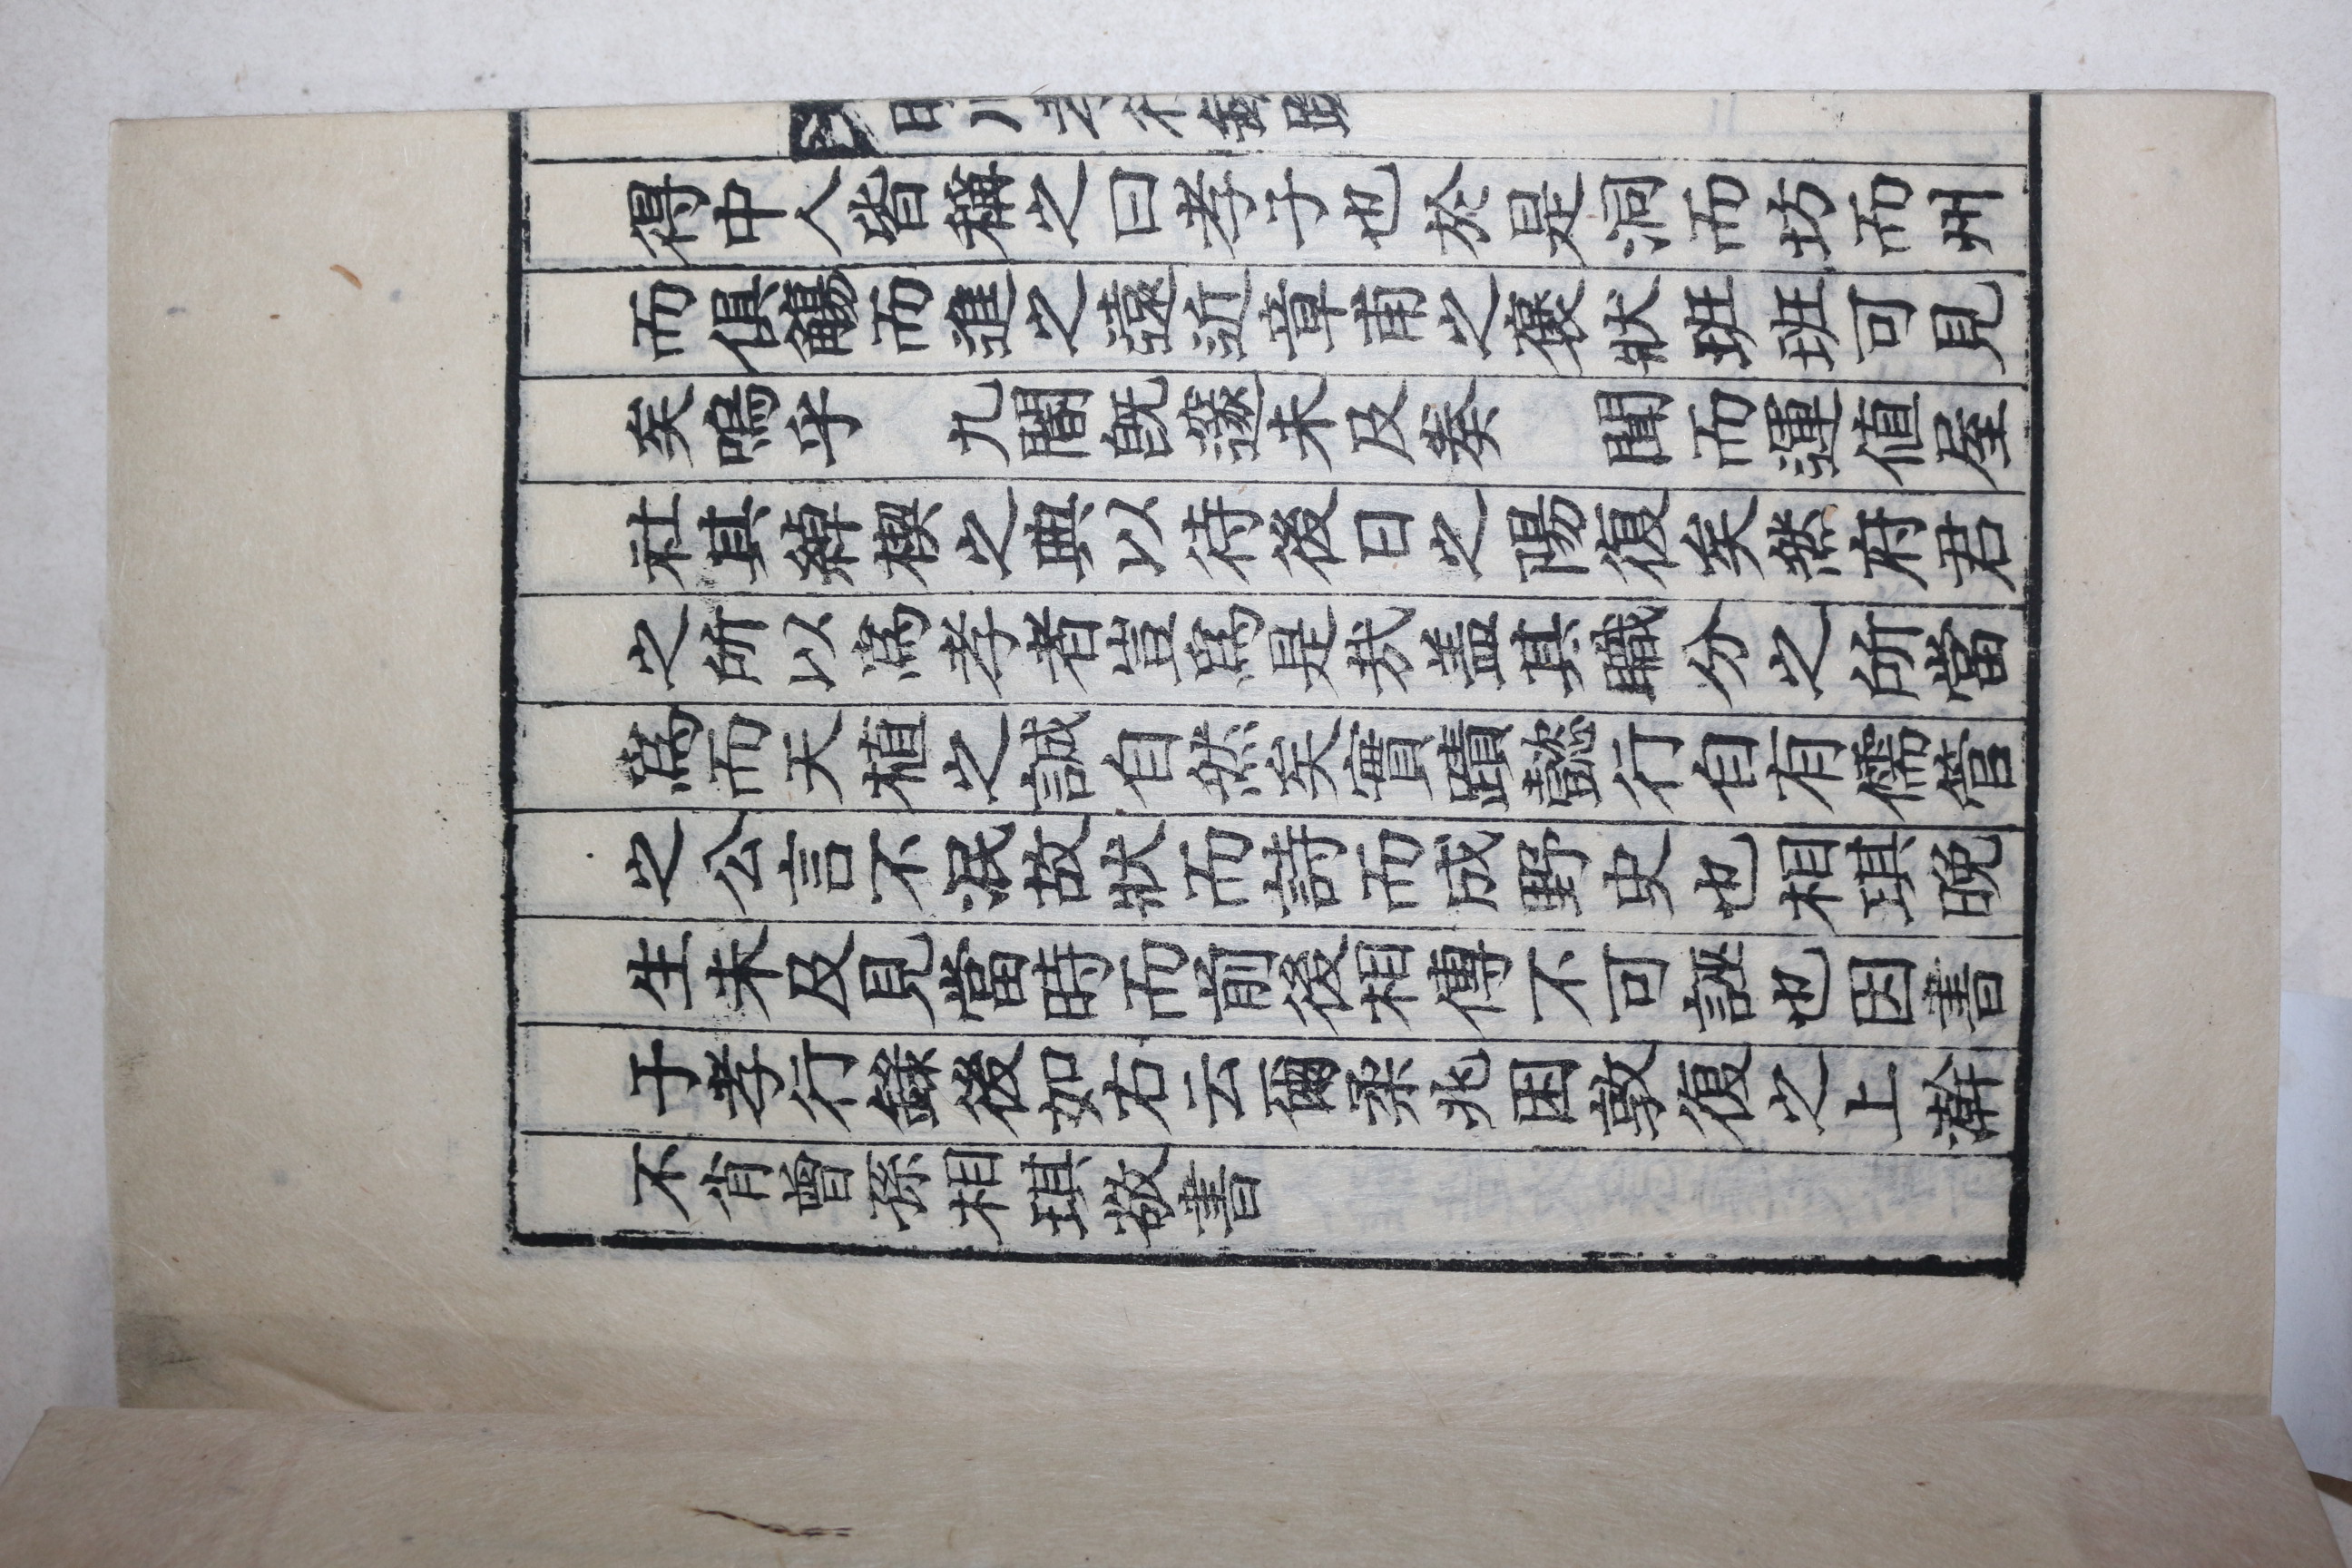 得中人皆稱之曰孝子也於是洞而坊而州
而俱觴而進之遠近章甫之褒狀班班可見
矣嗚乎 九閽旣邃未及奏 聞而運値屋
社其綽楔之典以待後日之陽復矣然府君
之所以爲孝者豈爲是㢤盖其職分之所當
爲而天植之誠自然矣實蹟懿行自有儒管
之公言不泯故狀而詩而成野史也相琪晩
生未及見當時而前後相傳不可誣也因書
于孝行錄後如右云爾柔兆困敦復之上澣
不肖曾孫相琪敬書
川孝行錄跋